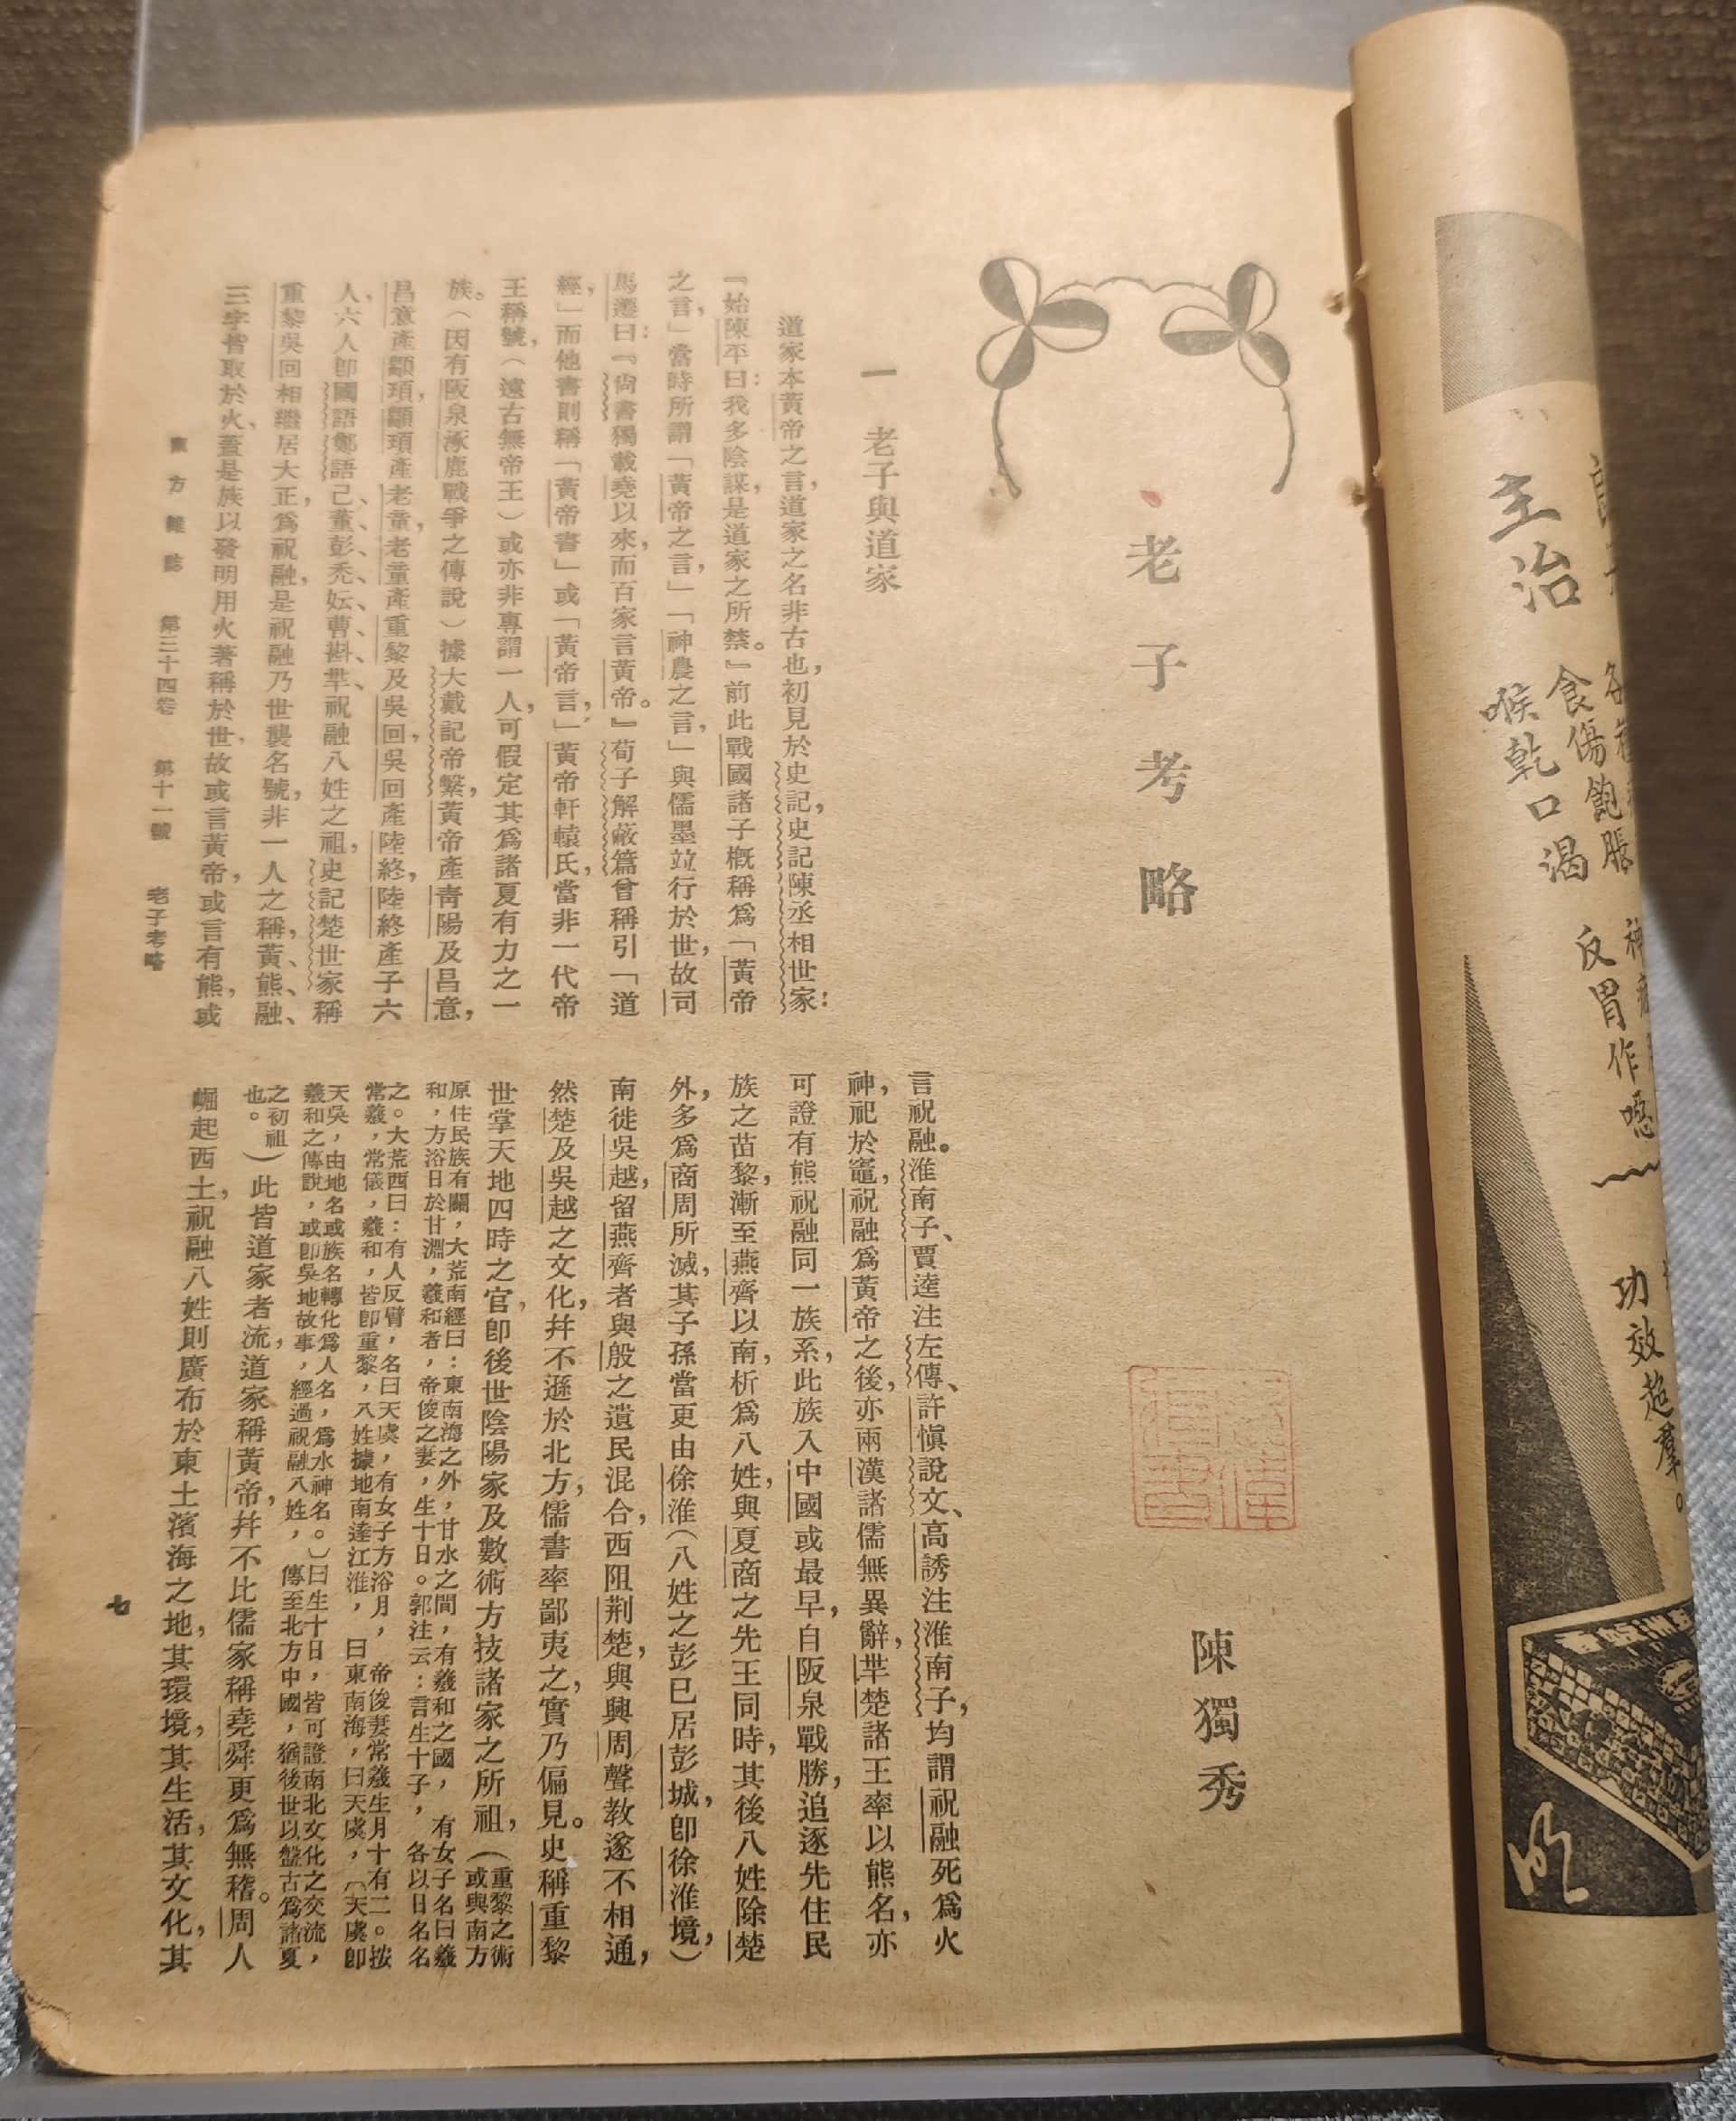 老子考略
陳獨秀
一　老子與道家
道家本黃帝之言，道家之名非古也，初見於史記，史記陳丞相世家：
『始陳平曰：我多陰謀，是道家之所禁。』前此戰國諸子概稱爲「黃帝
之言，」當時所謂「黃帝之言，」「神農之言，」與儒墨竝行於世，故司
馬遷曰：『尙書獨載堯以來，而百家言黃帝。』荀子解蔽篇曾稱引「道
經，」而他書則稱「黃帝書」或「黃帝言，」黃帝軒轅氏，當非一代帝
王稱號，（遠古無帝王）或亦非專謂一人，可假定其爲諸夏有力之一
族。（因有阪泉涿鹿戰爭之傳說）據大戴記帝繫，黃帝產青陽及昌意，
昌意產顓頊，顓頊產老童，老童產重黎及吳回，吳回產陸終，陸終產子六
人，六人卽國語鄭語己、董、彭、禿、妘、曹、斟、羋、祝融八姓之祖，史記楚世家稱
重黎吳回相繼居大正，爲祝融，是祝融乃世襲名號，非一人之稱，黃、熊、融、
三字皆取於火，蓋是族以發明用火著稱於世，故或言黃帝，或言有熊，或
言祝融。淮南子、賈逵注左傳、許愼說文、高誘注淮南子，均謂祝融死爲火
神，祀於竈，祝融爲黃帝之後，亦兩漢諸儒無異辭，羋楚諸王率以熊名，亦
可證有熊祝融同一族系，此族入中國或最早，自阪泉戰勝，追逐先住民
族之苗黎，漸至燕齊以南，析爲八姓，與夏商之先王同時，其後八姓除楚
外，多爲商周所滅，其子孫當更由徐淮（八姓之彭已居彭城，卽徐淮境，）
南徙吳越，留燕齊者與殷之遺民混合，西阻荆楚，與興周聲敎遂不相通，
然楚及吳越之文化，幷不遜於北方，儒書率鄙夷之，實乃偏見。史稱重黎
世掌天地四時之官，卽後世陰陽家及數術方技諸家之所祖，（重黎之術
或與南方
原住民族有關，大荒南經曰：東南海之外，甘水之間，有羲和之國，有女子名曰羲
和，方浴日於甘淵，羲和者，帝俊之妻，生十日。郭注云：言生十子，各以日名名
之。大荒西曰：有人反臂，名曰天虞，有女子方浴月，帝俊妻常羲生月十有二。按
常羲，常儀，羲和，皆卽重黎，八姓據地南達江淮，曰東南海，曰天虞，〔天虞卽
天吳，由地名或族名轉化爲人名，爲水神名。〕曰生十日，皆可證南北文化之交流，
羲和之傳說，或卽吳地故事，經過祝融八姓，傳至北方中國，猶後世以盤古爲諸夏
之初祖
也。）此皆道家者流，道家稱黃帝，幷不比儒家稱堯舜更爲無稽。周人
崛起西土，祝融八姓則廣布於東土濱海之地，其環境，其生活，其文化，其
東方雜誌　第三十四卷　第十一號　老子考略
七
主治
食傷飽脹
喉乾口渴
反胃作噁
功效超羣。